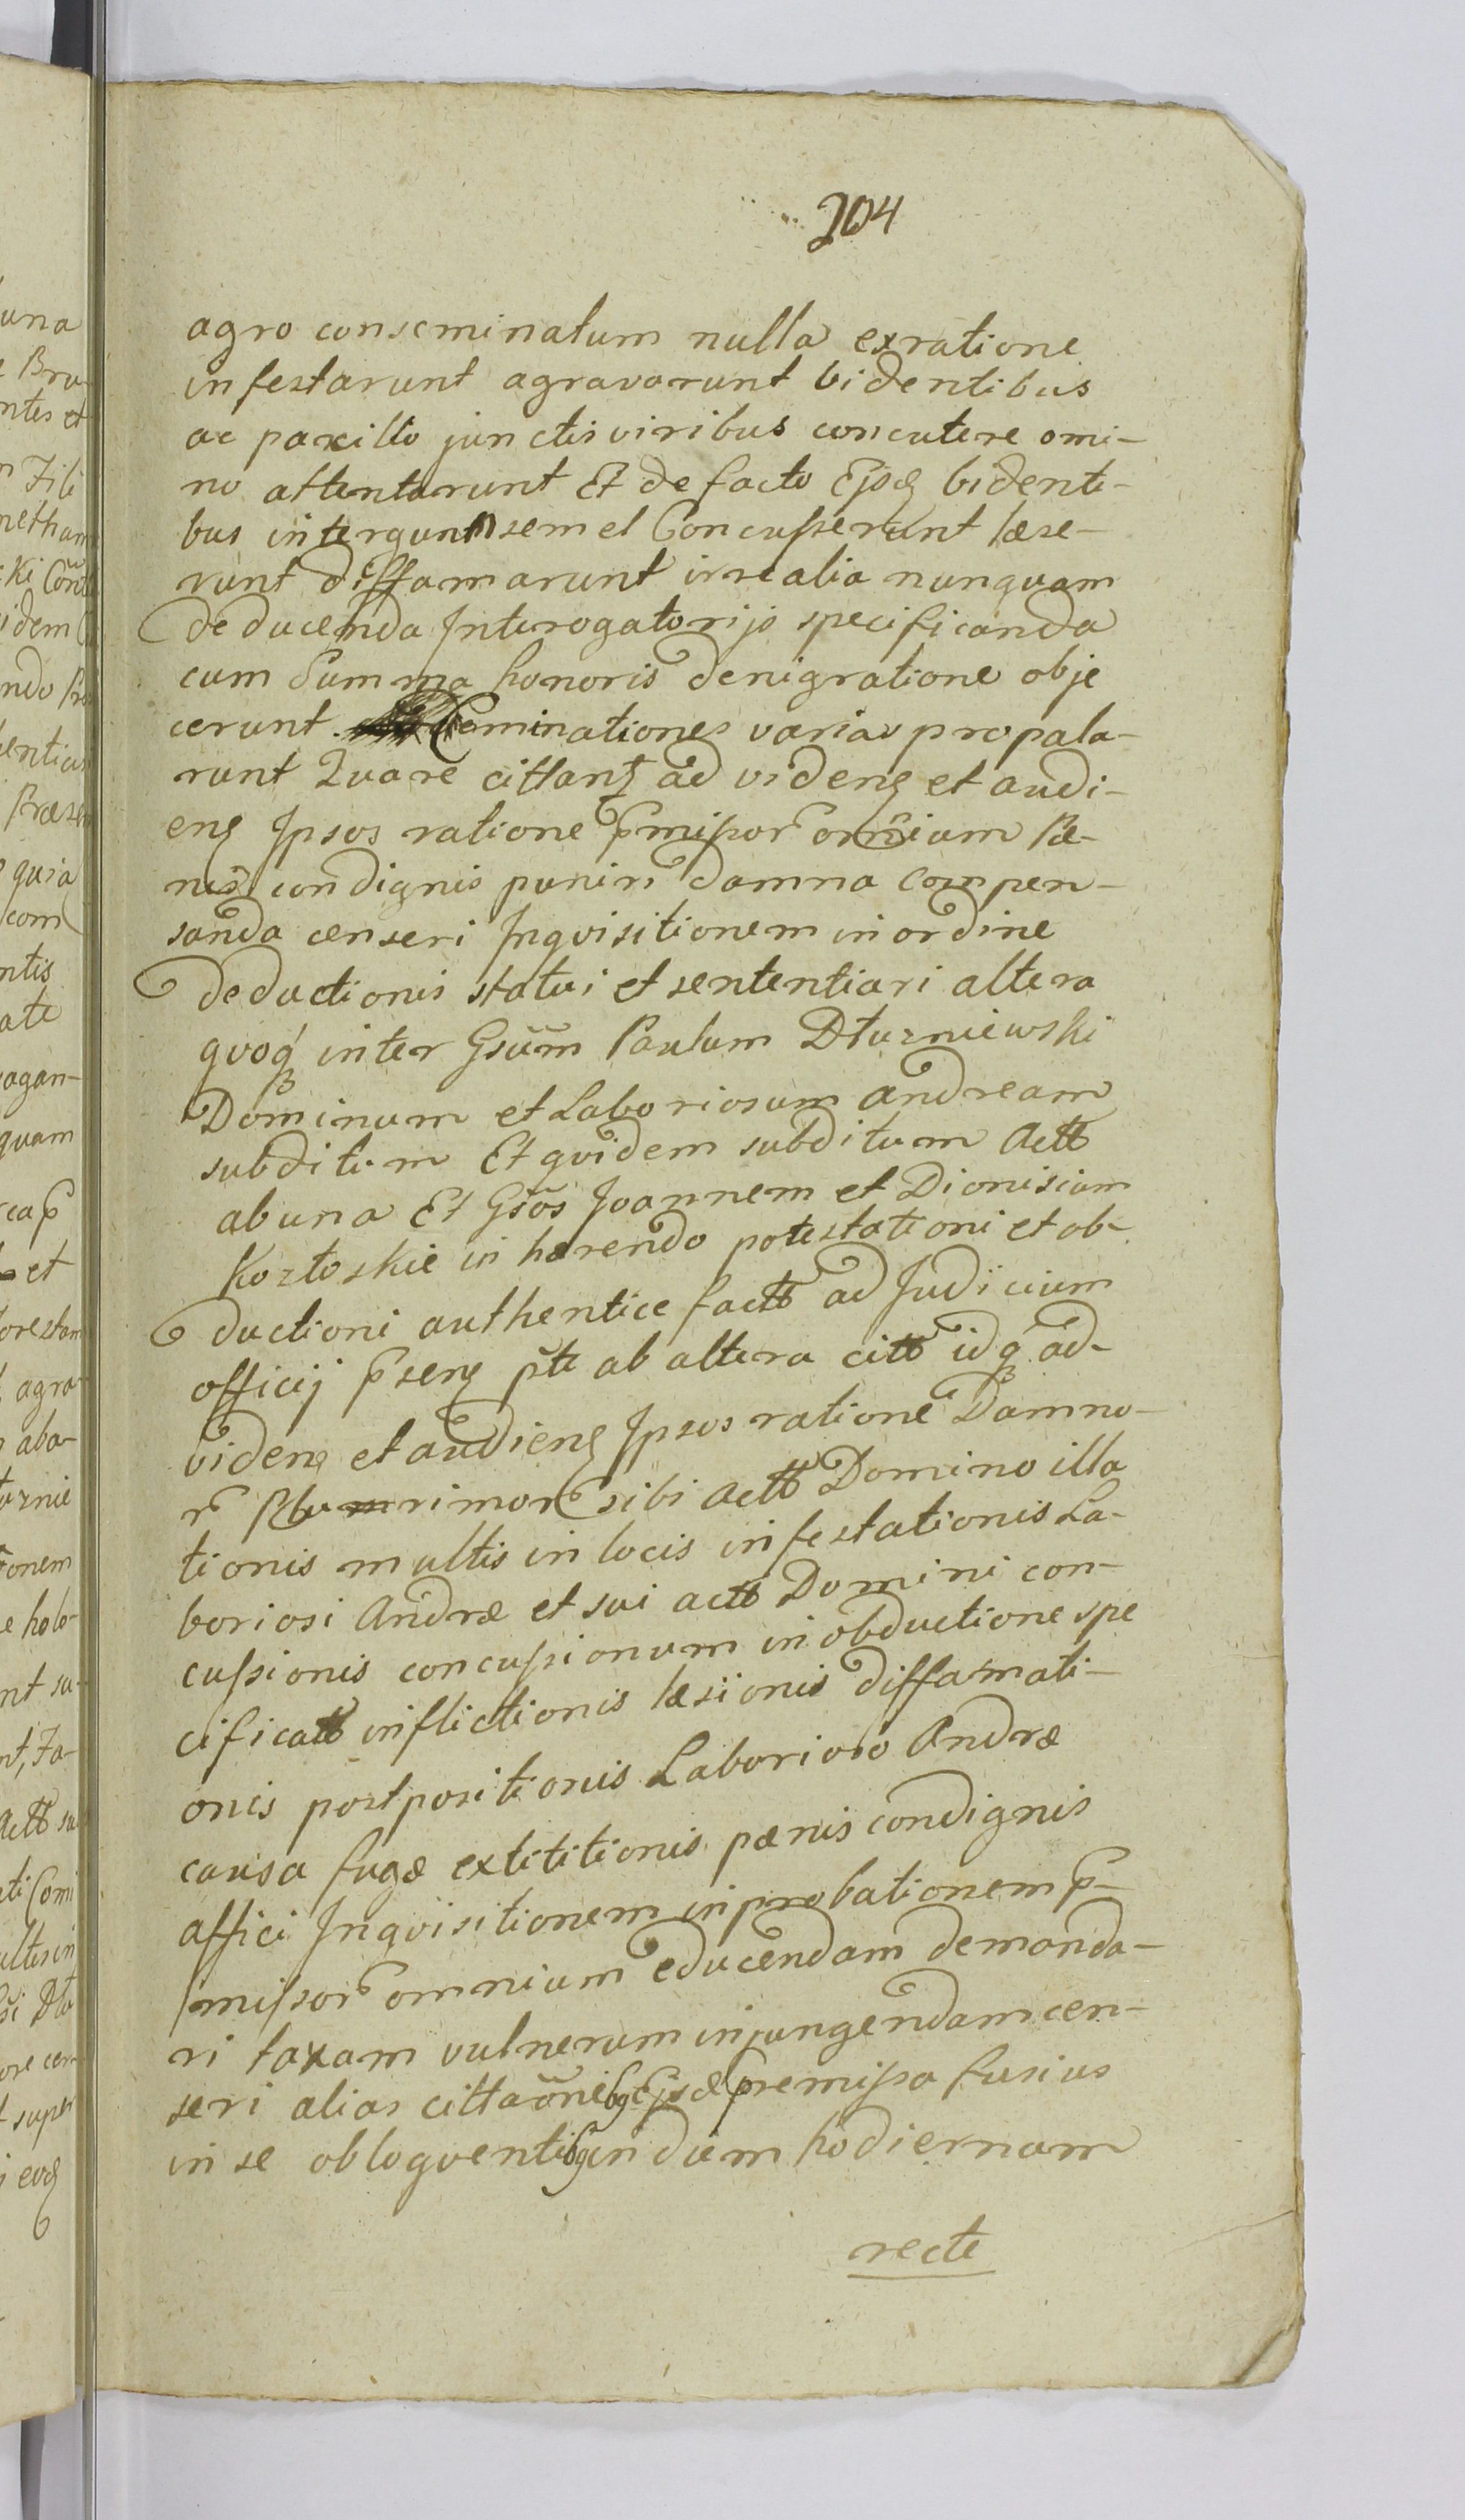 204
agro conseminatum nulla exratione
infestarunt agravarunt bidentibus
ac paxillo junctis viribus concutere omi-
no attentarunt Et de facto Ejsdē bidenti-
bus intergum semel Concusserunt læse-
runt diffamarunt irrealia nunquam
deducenda Interogatorijs specificanda
cum Summa honoris denigratione obje
cerunt Cominationes varias propala-
runt Quare cittant ad videnḡ et audi-
enḡ Ipsos ratione p̄missor̄ omnium Pæ-
nis condignis puniri damna compen-
sanda censeri Inqvisitionem in ordine
deductionis statui et sententiari altera
qvoq́ inter Gsũm Paulum Dłużniewski
Dominum et Laboriosum Andream
subditum Et qvidem subditum Actt
ab una Et Gsõs Joannem et Dionisium
Kozłoskie in hærendo potestationi et ob-
ductioni authentice factt ad Judicium
officij p̄senḡ p̃te ab altera citt idq́ ad-
videnḡ et audienḡ Ipsos ratione Damno-
r̄ Plurimor̄ sibi Actt Domino illa
tionis multis in locis infestationis La-
boriosi Andræ et sui actt Domini con-
cussionis concussionum in obductione spe
cificatt inflictionis læsionis diffamati-
onis postpositionis Laborioso Andræ
causa fugæ extititionis pænis condignis
affici Inqvisitionem in probationem p̄-
missor̄ omnium educendam demanda-
ri taxam vulnerum injungendam cen-
seri alias cittaõnibq Ejsdē premissa fusius
in se obloqventibq in diem hodiernam
recte